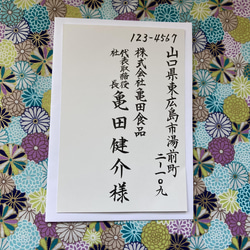 123-4567
山口県東広島市湯前町
二-一〇九
株式会社亀田食品
代表取締役
社長
亀田健介様